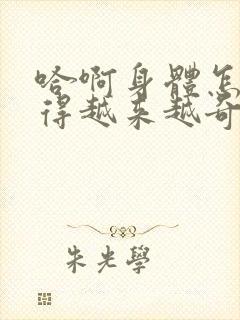 哈啊身體怎
得越来越奇
朱光學